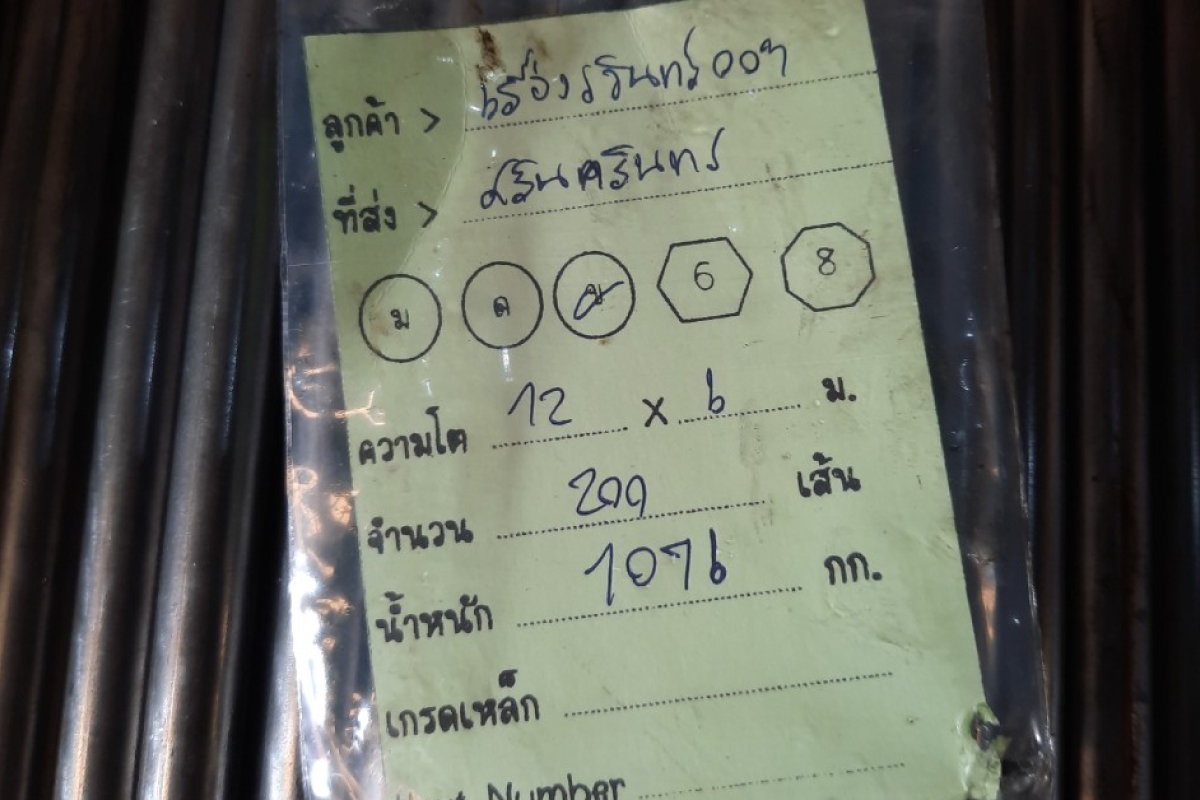 ลูกค้า >
ที่ส่ง > ศรีนครินทร์
ม ด 6 8
ความโต 12 x 6 ม.
จำนวน 200 เส้น
น้ำหนัก 1076 กก.
เกรดเหล็ก
Number